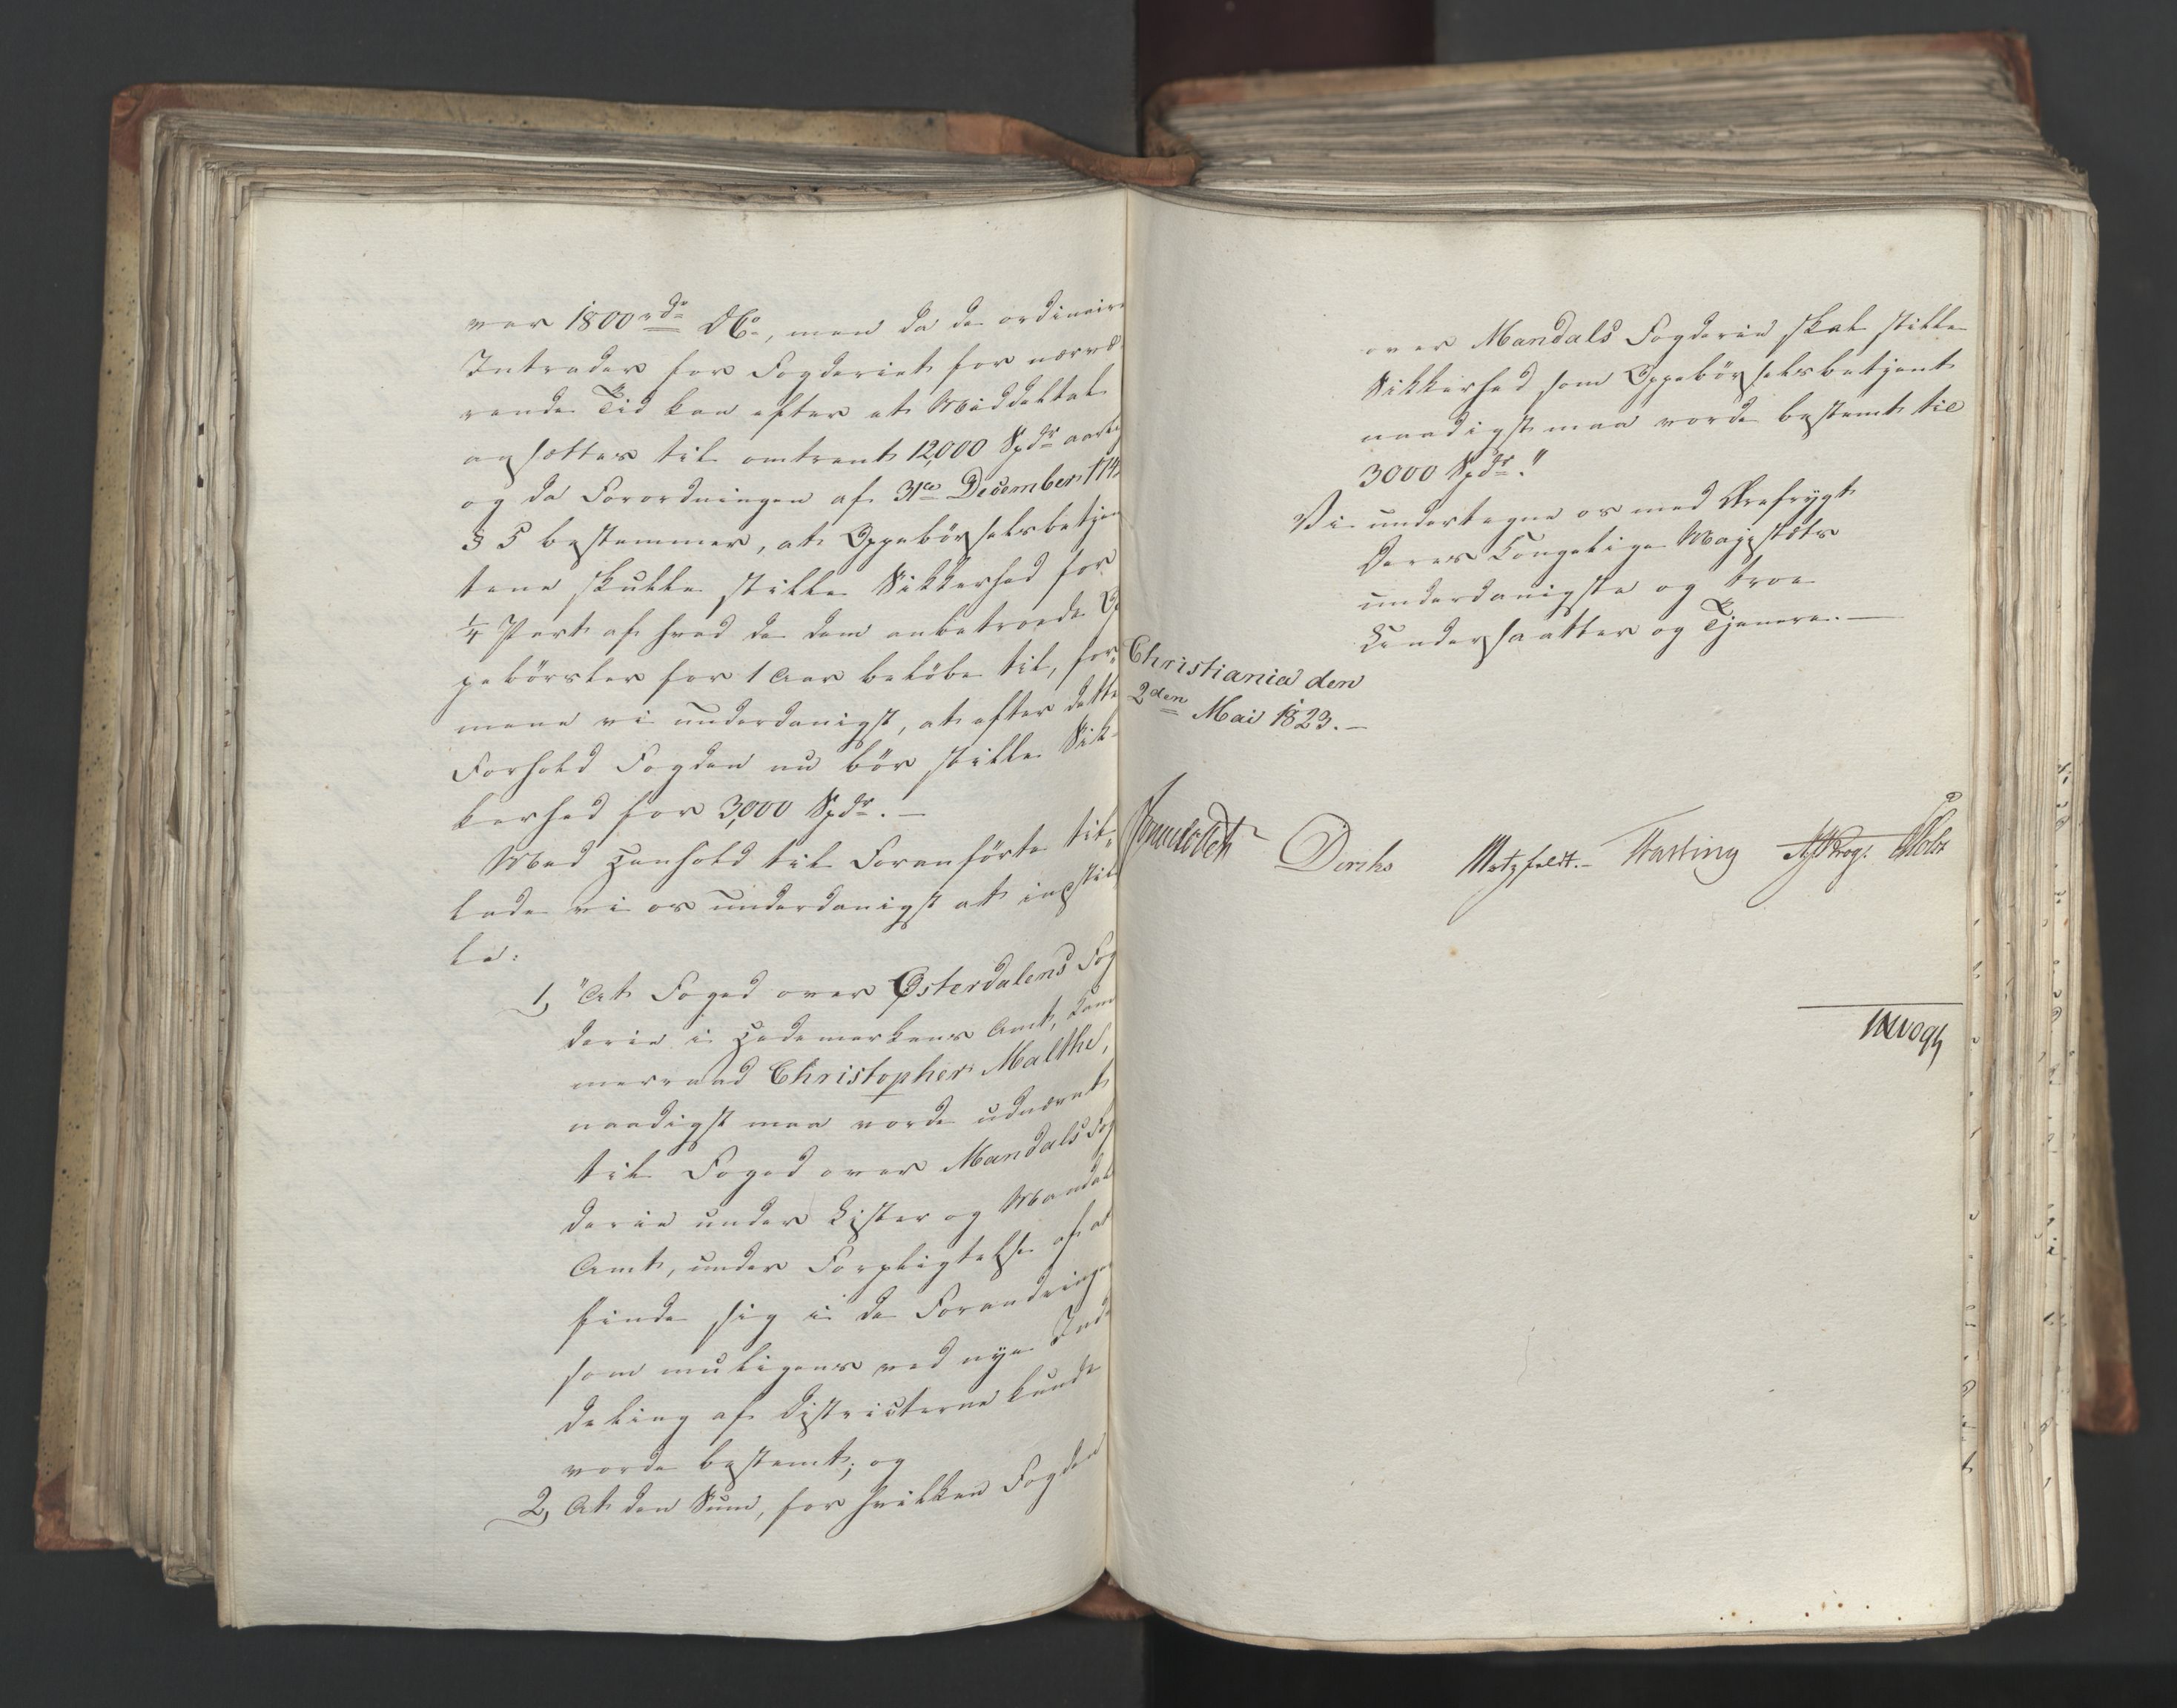 var 1800 rd. DC., men da de ordinaire
Intrader for Fogderiet for nærvæ-
rende Tid kan efter et Middeltal
ansættes til omtrent 12,000 Spdr aarlig
og da Forordningen af 31te December 174
§ 5 bestemmer, at Oppebørselsbetjen
tene skulle stille Sikkerhed for
1/4 Part af hvad de dem anbetroede Op
pebørsler for 1 Aar beløbe til, for„
mene vi underdanigst, at efter dette
Forhold Fogden nu bør stille Sik-
kerhed for 3,000 Spdr. —
Med Henhold til Foranførte til„
lade vi os underdanigst at indstil
le:
1, "At Foged over Østerdalens Fog
derie i Hedemarkens Amt, Kam
merraad Christopher Malthe,
naadigst maa vorde udnævnt
til Foged over Mandals Fog
derie under Lister og Mandals
Amt, under Forpligtelse af at
finde sig i de Forandringer
som muligens ved nye Ind
deling af Districterne kunde
vorde bestemt; og
2, At den Sum, for hvilken Fogden
over Mandals Fogderie skal stille
Sikkerhed som Oppebørselsbetjent
naadigst maa vorde bestemt til
3000 Spdr."
Vi undertegne os med Ærefrygt
Deres Kongelige Majestæts
underdanigste og troe
Undersaatter og Tjenere. —
Christiania den
2den Mai 1823. —
Diriks Motzfeldt. Fasting Krog. Holst